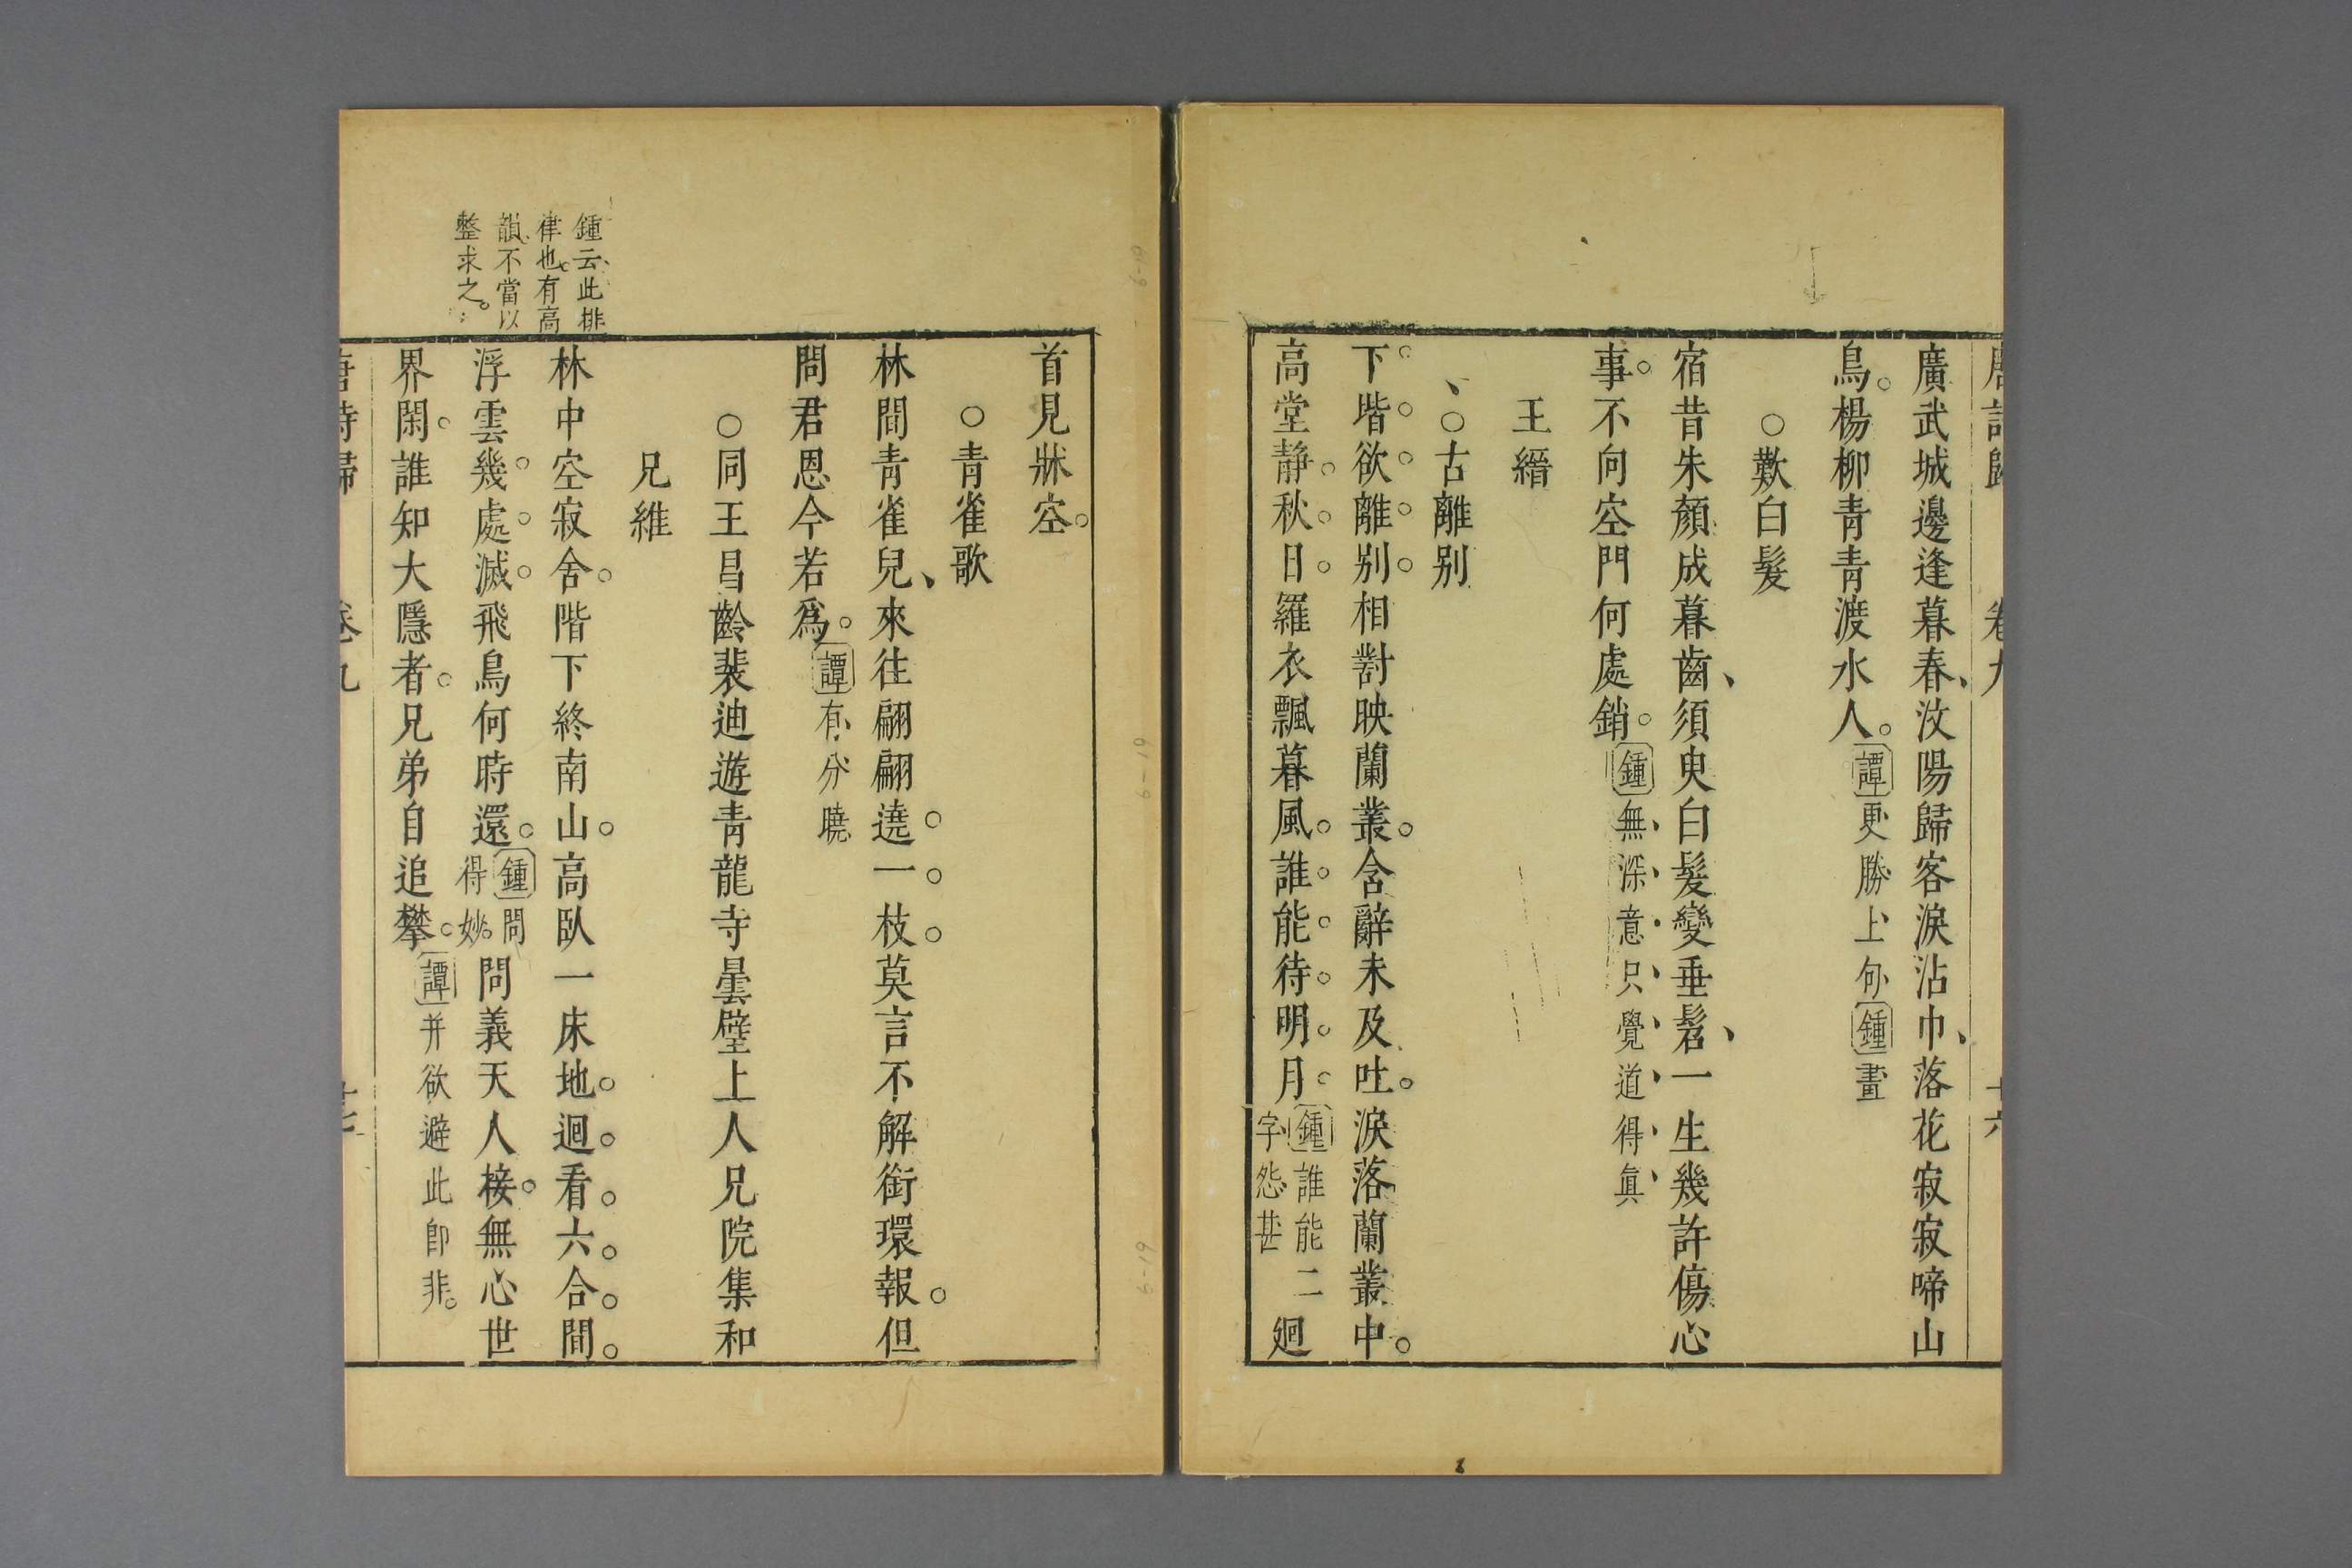 廣武城邊逢暮春汶陽歸客淚沾巾落花寂寂啼山
鳥楊柳青青渡水人譚更勝上句鍾畫
○歎白髮
宿昔朱顏成暮齒須臾白髮變垂髫一生幾許傷心
事不向空門何處銷鍾無深意只覺道得眞
王縉
○古離別
下堦欲離別相對映蘭叢含辭未及吐淚落蘭叢中
高堂静秋日羅衣飄暮風誰能待明月鍾誰能二字怨甚廻
首見牀空
○青雀歌
林間青雀兒來往翩翩遶一枝莫言不解銜環報但
問君恩今若爲譚有分曉
○同王昌齡裴迪遊青龍寺曇壁上人兄院集和
兄維
鍾云此排
律也有高
韻不當以
整求之
林中空寂舍階下終南山高臥一床地迴看六合間
浮雲幾處滅飛鳥何時還鍾問得妙問義天人接無心世
界閑誰知大隱者兄弟自追攀譚并欲避此卽非